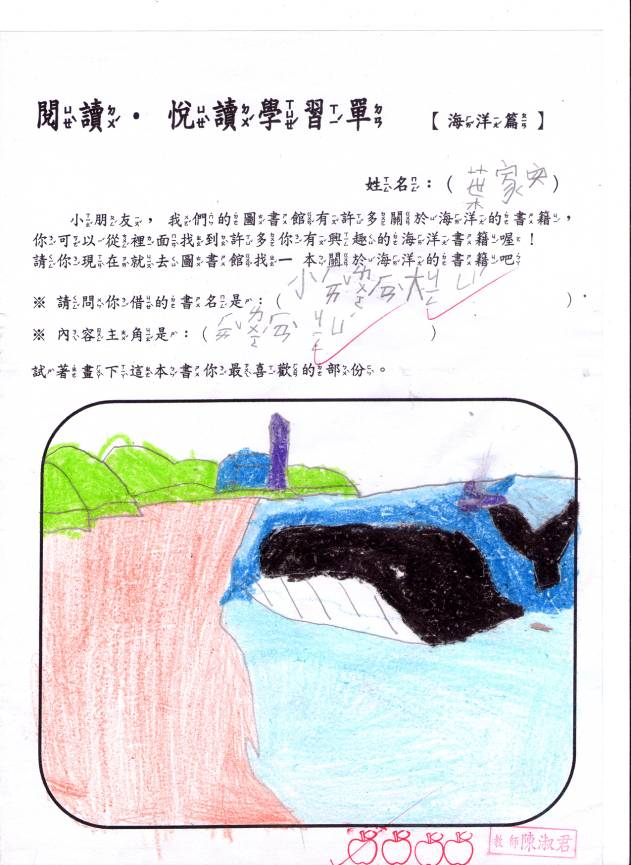 閱讀・悅讀學習單 【海洋篇】
姓名：(葉家安)
小朋友，我們的圖書館有許多關於海洋的書籍，
你可以從裡面找到許多你有興趣的海洋書籍喔！
請你現在就去圖書館找一本關於海洋的書籍吧
※ 請問你借的書名是：(小ㄏㄨㄟ大ㄐㄧㄥ)
※ 內容主角是：( )
試著畫下這本書你最喜歡的部份。
教師 陳淑君